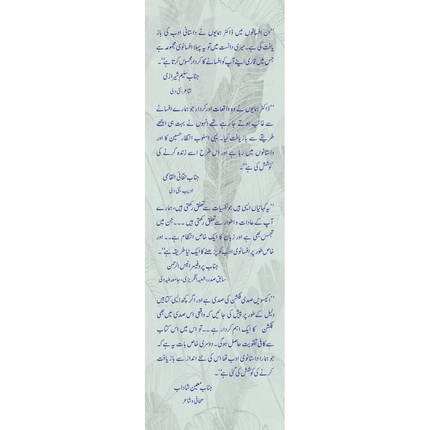 "ان افسانوں میں ڈاکٹر ہمایوں نے داستانی ادب کی باز
یافت کی ہے۔ میری دانست میں تو یہ پہلا افسانوی مجموعہ ہے
جس میں قاری اپنے آپ کو افسانے کا کردار محسوس کرتا ہے"۔
جناب سلیم شیرازی
شاعر، نئی دہلی
"ڈاکٹر ہمایوں نے وہ واقعات اور کردار جو ہمارے افسانے
سے غائب ہوتے جارہے تھے انہوں نے بہت ہی اچھے
طریقے سے بازیافت کیا۔ یہی اسلوب انتظار حسین کا اور
داستانوں میں رہا ہے اور اس طرح اسے زندہ کرنے کی
کوشش کی ہے"۔
جناب حقانی القاسمی
ادیب، نئی دہلی
"یہ کہانیاں ایسی ہیں جو نفسیات سے تعلق رکھتی ہیں، ہمارے
آپ کے عادات و اطوار سے تعلق رکھتی ہیں ۔۔۔ جن میں
تجسس بھی ہے اور زبان کا ایک خاص انتظام ہے۔۔ اور
خاص طور پر افسانوی ادب کو پڑھنے کا ایک نیا طریقہ ہے"۔
جناب پروفیسر انیس الرحمن
سابق صدر، شعبۂ انگریزی، جامعہ ملیہ، دہلی
"اکیسویں صدی فکشن کی صدی ہے اور اگر کچھ ایسی کتابیں
دلیل کے طور پر پیش کی جائیں کہ واقعی اس صدی میں بھی
فکشن کا ایک اہم کردار ہے ۔۔ تو اس میں اس کتاب
سے کافی تقویت حاصل ہوگی۔ دوسری خاص بات یہ ہے کہ
جو ہمارا داستانوی ادب تھا اس کی نئے انداز سے بازیافت
کرنے کی کوشش کی گئی ہے"۔
جناب معین شاداب
صحافی و شاعر